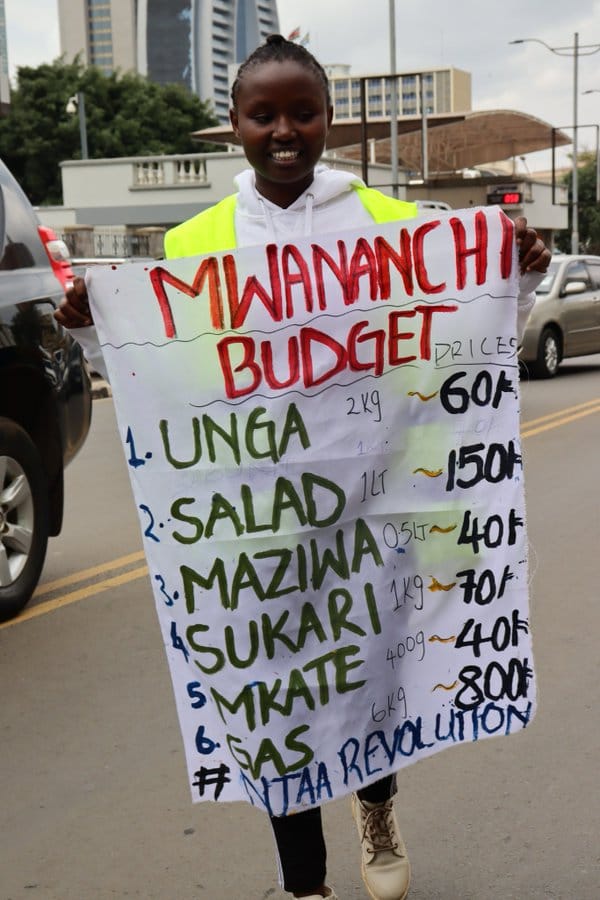 MWANANCHI
BUDGET
PRICES
1. UNGA 2kg ~ 60/=
2. SALAD 1LT ~ 150/=
3. MAZIWA 0.5LT ~ 40/=
4 SUKARI 1kg ~ 70/=
5 MKATE 400g ~ 40/=
6. GAS 6kg ~ 800/=
# NJAA REVOLUTION